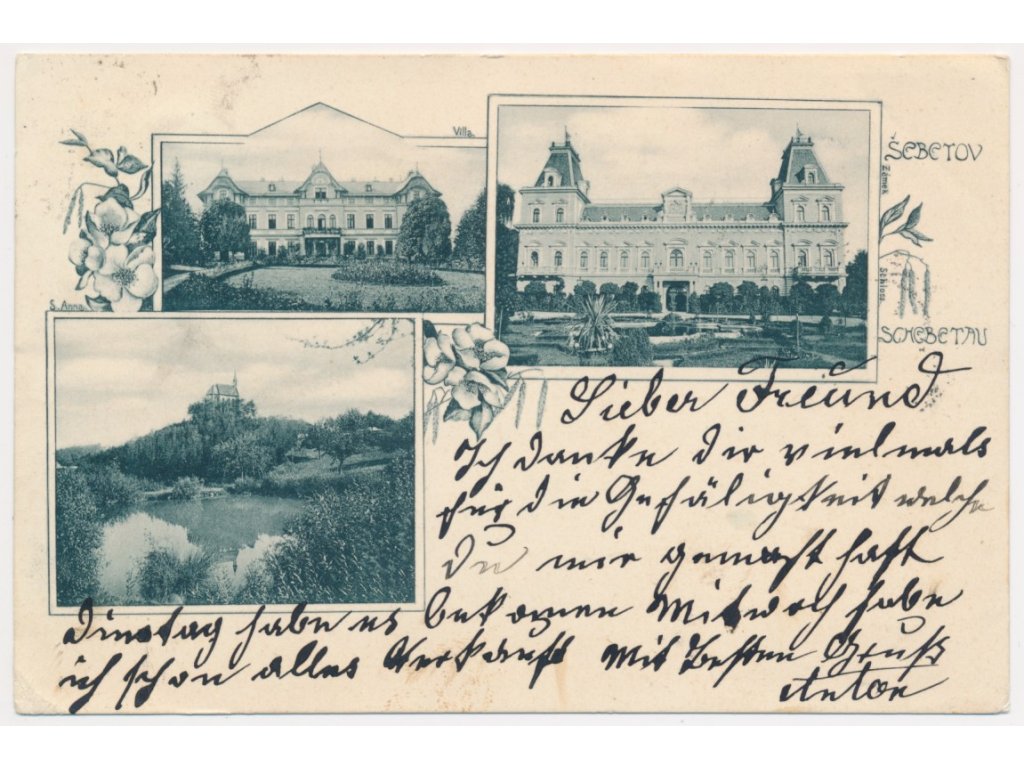 Villa.
ŠEBETOV
Zámek
Schloss
SCHEBETAU
S. Anna.
Lieber Freund
Ich danke dir vielmals
für die Gefäligkeit welche
Du mir gemacht hast
Dinstag habe es bekomen Mitwoch habe
ich schon alles Verkauft Mit Besten Gruß
Anton